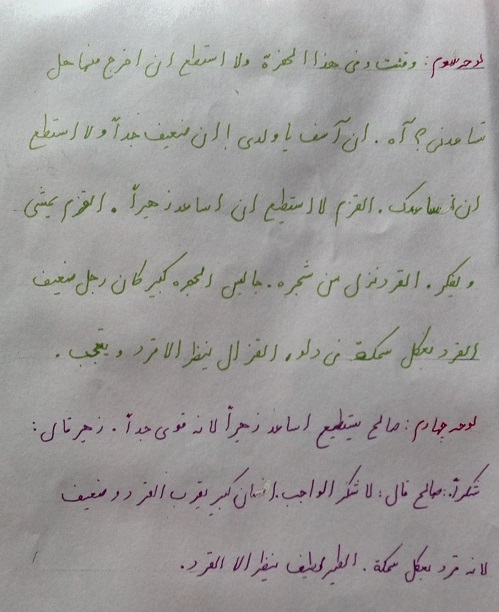 لوحه سوم: وقعت في هذا الحفرة ولا استطع ان اخرج منها هل
تساعدني؟ آه. ان آسف يا ولدي اان ضعيف جداً ولا استطع
ان اساعدك. القزم لا استطيع ان اساعد زهيراً. القزم يمشي
ويفكر. القرد نزل من شجره. جالس الحجره كبير كان رجل ضعيف
القرد يعكل سمكة في دلو، الغزال ينظر الا قرد و يتعجب.
لوحه چهارم: صالح يستطيع اساعد زهيراً لانه قوى جداً. زهير قال:
شكراً. صالح قال: لا شكر الواجب. انسان كبير يقرب القرد و ضعيف
لانه قرد يعكل سمكة. الطير لطيف ينظر الا القرد.